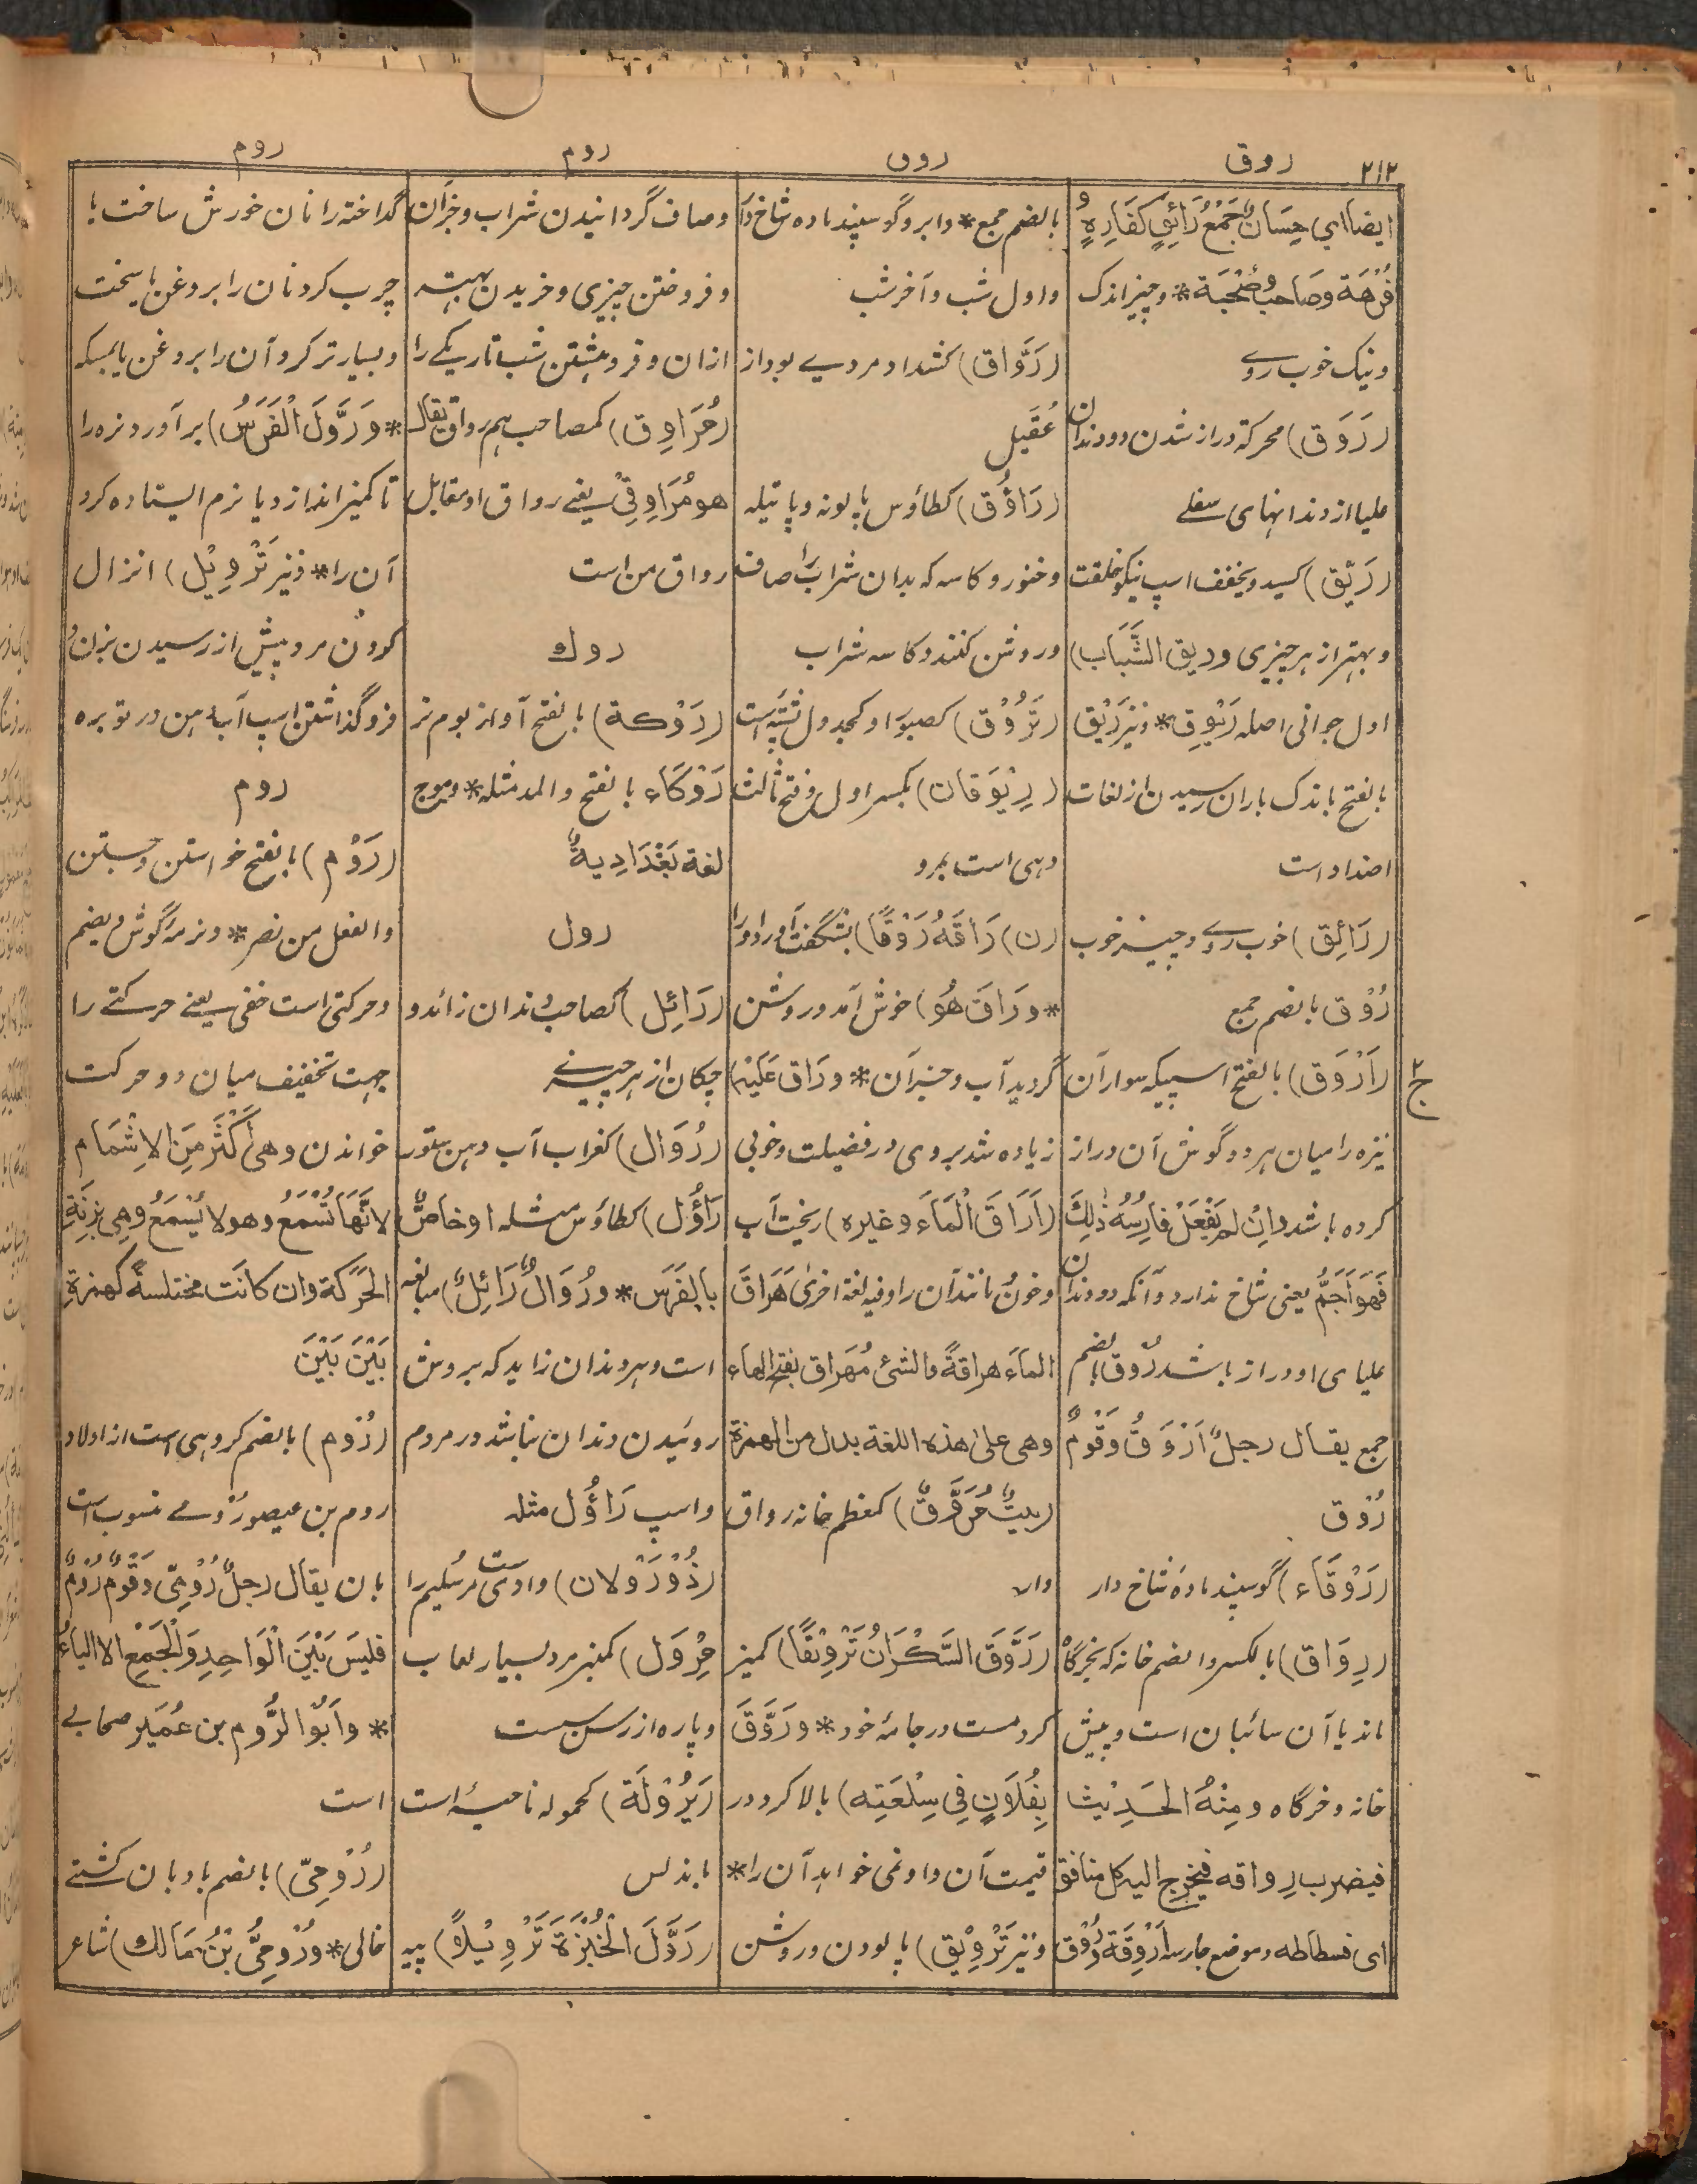 ۲۱۲
روق
روق
روم
روم
ایضا ای حِسَانٌ جَمْعُ رَائِقٍ کَفَارِهٍ و
فُرْهَة وصَاحبٌ وصُحْبَة * وچیز اندک
ونیک خوب روے
(رَوَق) محرکة دراز شدن دو دندان
علیا از دندانهای سفلے
(رَیّق) کسید ویخفف اسپ نیکو خلقت
وبهتر از هر چیزی وریق الشَّبَاب)
اول جوانی اصله رَیْوِق * ونیز رَیْق
بالفتح باندک باران رسیدن از لغات
اضداد است
(رَائِق) خوب روے وچیز خوب
رُوْق بالضم جمع
ج۲
(اَرْوَق) بالفتح اسپیکه سوار آن
نیزه را میان هر دو گوش آن دراز
کرده باشد واِنْ لم یَفْعَلْ فَارِسُهُ ذٰلِكَ
فَهُوَ اَجَمُّ یعنی شاخ ندارد وآنکه دو دندان
علیای او دراز باشد رُوق بالضم
جمع یقال رجلٌ اَرْوَقُ وَقَوْمٌ
رُوْق
(رَوْقَاء) گوسپند ماده شاخ دار
(رِوَاق) بالکسر والضم خانه که بخرگاه
ماند یا آن سائبان است وپیش
خانه وخرگاه ومِنْهُ الحَدِیْثُ
فیضرب رِواقه فیخرج الیه کل منافق
ای فسطاطه وموضع جلوسه اَرْوِقَة رُوْق
بالضم جمع * وابرو گوسپند ماده شاخ دار
واول شب وآخر شب
(رَوَّاق) کشداد مردے بود از
عُقَیل
(رَاؤُق) کطاؤس پالونه وپاتیله
وخنور وکاسه که بدان شراب را صاف
وروشن کنند وکاسه شراب
(تَرُوْق) کصبور او کجدول تشته است
(رِیْوَقان) بکسر اول وفتح ثالث
دهی است بمرو
(ن) رَاقَهُ رَوْقًا) بشگفت آورد او را
* ورَاقَ هُو) خوش آمد وروشن
گردید آب وجز آن * ورَاق عَلَیْهِ)
زیاده شد بر وی در فضیلت وخوبی
(اَرَاقَ الْمَاءَ وغیره) ریخت آب
وخون مانند آن را وفیه لغة اخری هَرَاقَ
الماءَ هراقةً والشئ مُهَراق بفتح الهاء
وهی علی هذه اللغة بدل من الهمزة
(بیتٌ مُرَوَّقٌ) کمعظم خانه رواق
دار
(رَوَّقَ السَّكْرَانُ تَرْوِیْقًا) کمیز
کرد مست در جامهٔ خود * ورَوَّقَ
بِفُلَاَنٍ فِی سِلْعَتِه) بالا کرد در
قیمت آن داد نمی خواهد آن را *
ونیز تَرْوِیْق) پالودن وروشن
وصاف گردانیدن شراب وجز آن
وفروختن چیزی وخریدن بهتر
از ان وفرو هشتن شب تاریکے را
(مُرَاوِق) کمصاحب هم رواق یقال
هومُرَاوِقِیْ یعنے رواق او مقابل
رواق من است
روك
(رَوْكة) بالفتح آواز بوم نر
رَوْكَاء بالفتح والمد مثله * وموج
لغة بَغْدَادِیةٌ
رول
(رَائِل) کصاحب دندان زائد و
چکان از هر چیزے
(رُوَال) کغراب آب دهن ستور
رَاؤُل) کطاؤس مثله او خاصٌّ
بالفَرَس * ورُوَالٌ رَائِلٌ) مبالغه
است وهر دندان زاید که بر وش
روئیدن دندان نباشد در مردم
واسپ رَاؤُل مثله
(ذُوْ رَوْلان) وادی است مر سُلیم را
مِرْوَل) کمنبر مرد بسیار لعاب
وپاره از رسن سست
(یَرُوْلَة) کحموله ناحیهٔ است
باندلس
(رَوَّلَ الْخُبْزَةَ تَرْوِیْلاً) پیه
گداخته را نان خورش ساخت یا
چرب کرد نان را بروغن یا سخت
وبسیار تر کرد آن را بروغن یا بمسکه
* وَرَوَّلَ الْفَرَسُ) بر آورد نره را
تا کمیز اندازد یا نرم ایستاده کرد
آن را * ونیز تَرْوِیْل) انزال
کردن مرد پیش از رسیدن بزن و
فرو گذاشتن اسپ آب دهن در توبره
روم
(رَوْم) بالفتح خواستن وجستن
والفعل من نصر * ونرمهٔ گوش ویضم
وحرکتی است خفی یعنے حرکتے را
جهت تخفیف میان دو حرکت
خواندن وهی اَکْثَرُ مِنَ الاِشْمَام
لاَنَّهَا تُسْمَعُ وهو لا یُسْمَعُ وهی بِزِنَةِ
الحَرَکة وان کانَت مختلسةً کهمزةِ
بَیْنَ بَیْنَ
(رُوْم) بالضم گروهی است از اولاد
روم بن عیصو رُوْمی منسوب است
بان یقال رجلٌ رُوْمِیّ وَقَوْمٌ رُوْمٌ
فلیسَ بَیْنَ الْوَاحِدِ وَالْجَمْعِ الا الیاءُ
* واَبُوْا لرُّوم بن عُمَیر صحابی
است
(رُوْمِیّ) بالضم بادبان کشتے
خالی * ورُوْمِیُّ بْنُ مَالك) شاعر